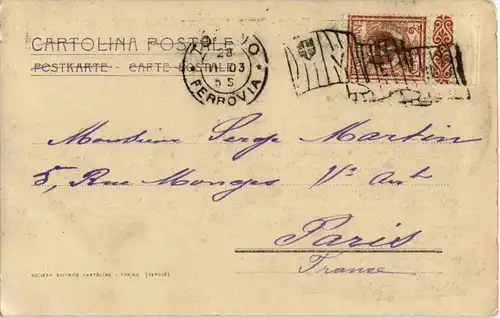 CARTOLINA POSTALE
POSTKARTE - CARTE POSTALE
28
03
5 S
FERROVIA
Monsieur Serge Martin
5, Rue Monges Vᵉ Arrᵗ
Paris
France
SOCIETÀ EDITRICE CARTOLINE - TORINO (NAPOLI)